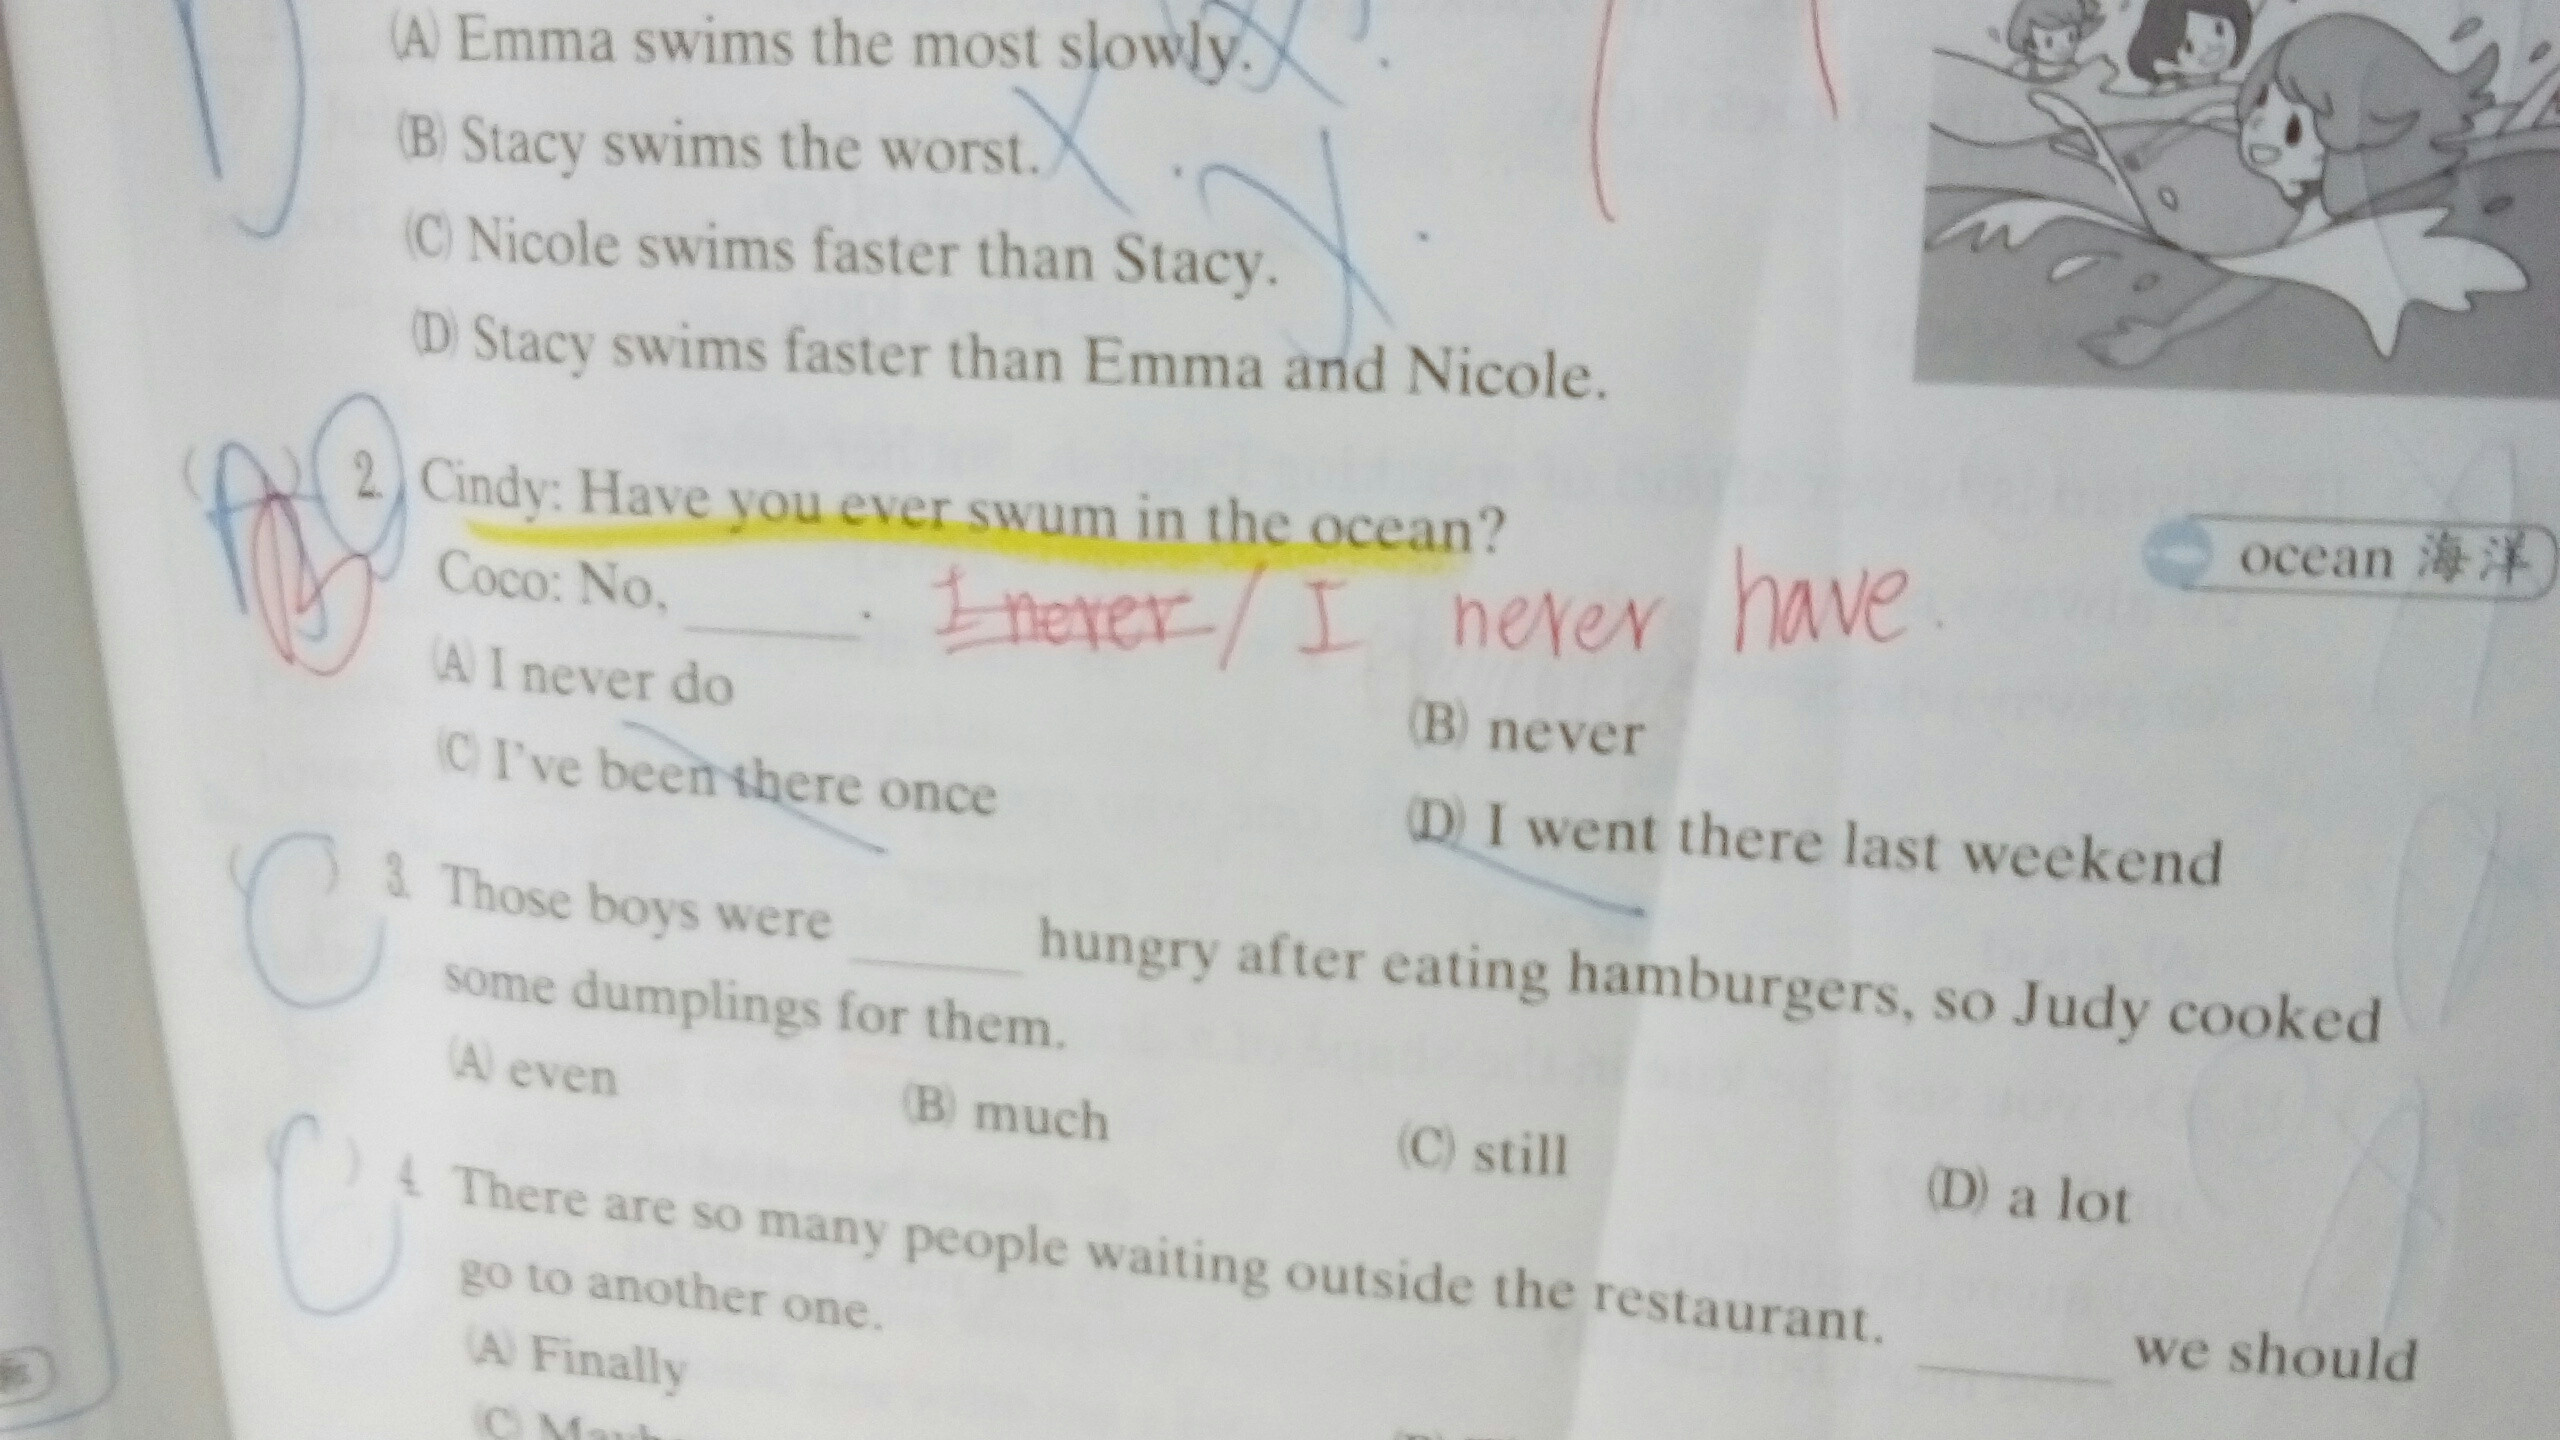 (A) Emma swims the most slowly.
(B) Stacy swims the worst.
(C) Nicole swims faster than Stacy.
(D) Stacy swims faster than Emma and Nicole.
2. Cindy: Have you ever swum in the ocean?
ocean 海洋
Coco: No, ______. I never / I never have.
(A) I never do
(B) never
(C) I've been there once
(D) I went there last weekend
C 3. Those boys were ______ hungry after eating hamburgers, so Judy cooked
some dumplings for them.
(A) even (B) much (C) still (D) a lot
C 4. There are so many people waiting outside the restaurant. ______ we should
go to another one.
(A) Finally
(C)